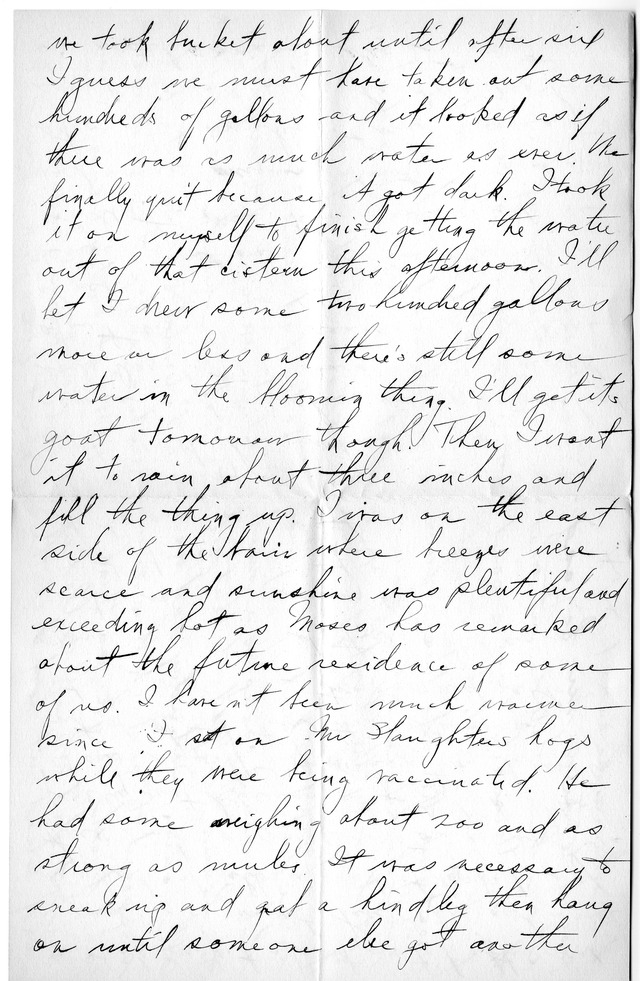 we took bucket about until after six
I guess we must have taken out some
hundreds of gallons and it looked as if
there was as much water as ever. We
finally quit because it got dark. I took
it on myself to finish getting the water
out of that cistern this afternoon. I'll
bet I drew some two hundred gallons
more or less and there's still some
water in the bloomin thing. I'll get its
goat tomorrow though. Then I want
it to rain about three inches and
fill the thing up. I was on the east
side of the barn where breezes were
scarce and sunshine was plentiful and
exceeding hot as Moses has remarked
about the future residence of some
of us. I haven't been much warmer
since I sat on Mr Slaughters hogs
while they were being vaccinated. He
had some weighing about 200 and as
strong as mules. It was necessary to
sneak up and gat a hind leg then hang
on until someone else got another